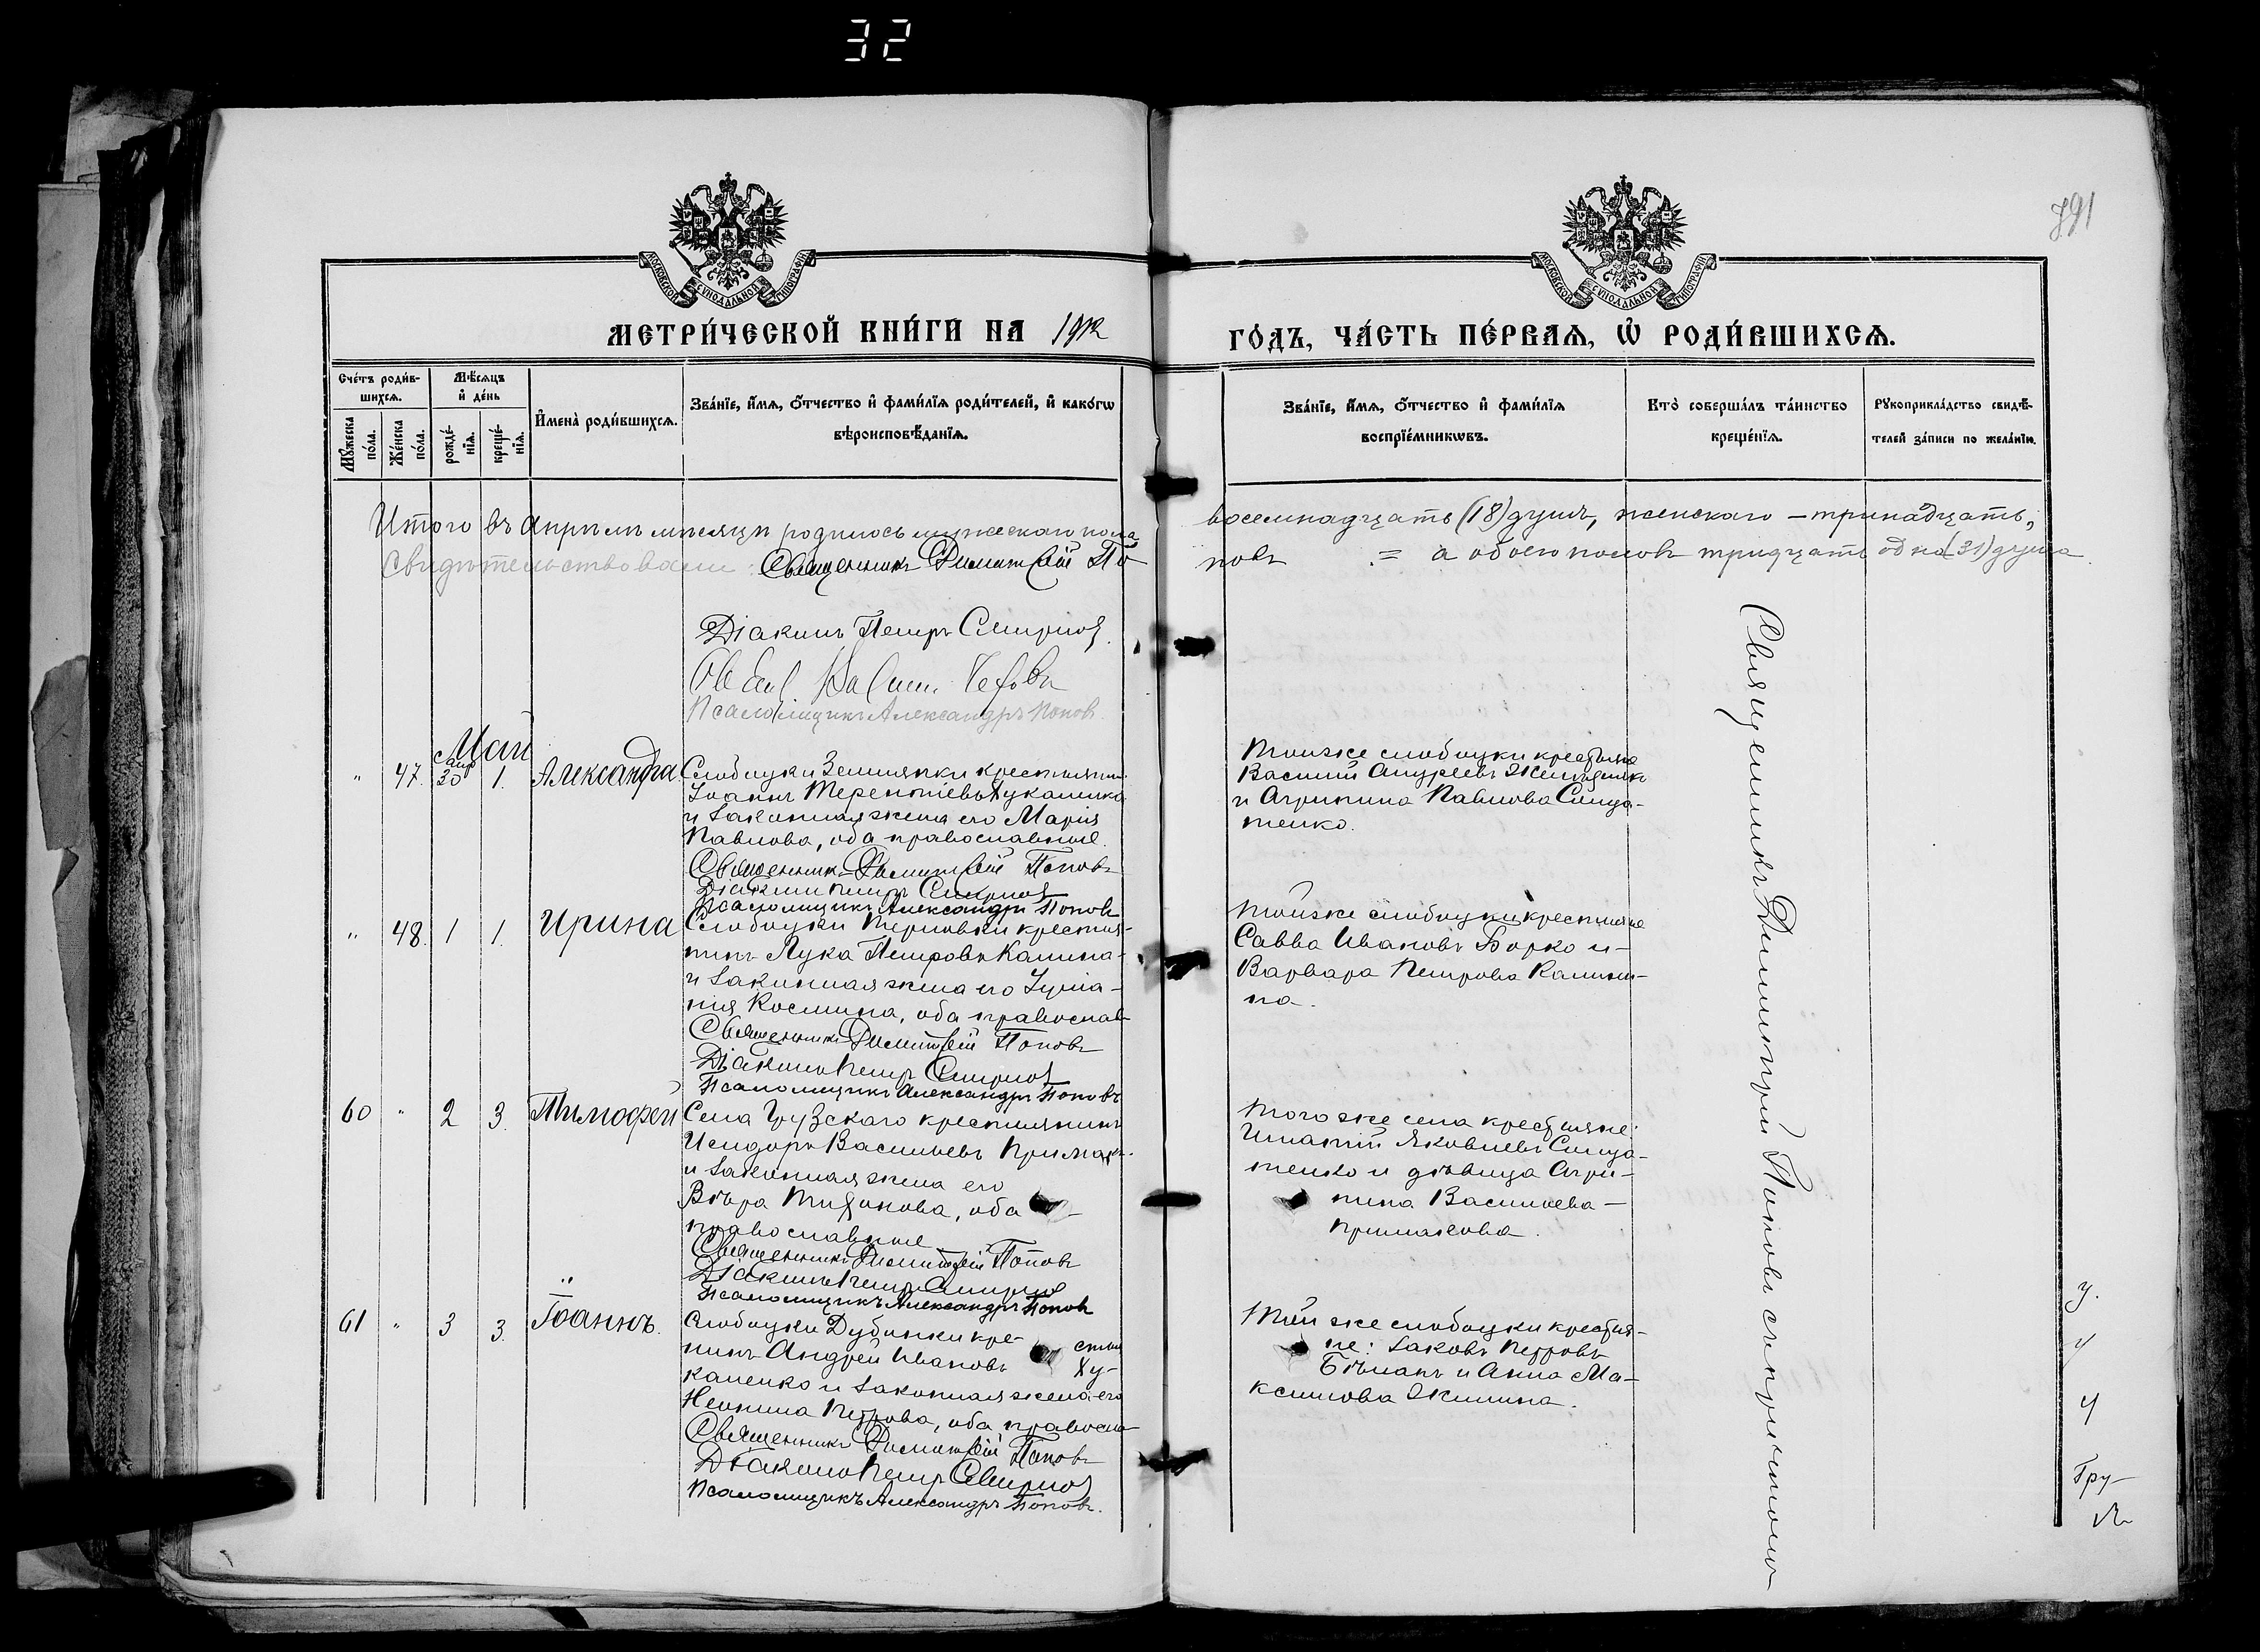 32
791
МОСКОВСКОЙ СѴНОДАЛЬНОЙ ТИПОГРАФІИ
МОСКОВСКОЙ СѴНОДАЛЬНОЙ ТИПОГРАФІИ
МЕТРИ́ЧЕСКОЙ КНИ́ГИ НА 1912
ГО́ДЪ, ЧА́СТЬ ПЕ́РВАѦ, Ѡ҆ РОДИ́ВШИХСѦ.
Сче́тъ роди́в-
шихсѧ.
Мꙋ́жеска по́ла.
Же́нска по́ла.
Мѣ́сѧцъ
и҆ де́нь
рожде́-
нїѧ.
креще́-
нїѧ.
И҆мена̀ роди́вшихсѧ.
Зва́нїе, и҆́мѧ, ѻ҆́тчество и҆ фами́лїѧ роди́телей, и҆ како́гѡ
вѣроисповѣ́данїѧ.
Зва́нїе, и҆́мѧ, ѻ҆́тчество и҆ фами́лїѧ
воспрїе́мникѡвъ.
Кто̀ соверша́лъ та́инство
креще́нїѧ.
Рꙋкоприкла́дство свидѣ́-
телей за́писи по жела́нїю.
Итого въ Апрѣлѣ мѣсяцѣ родилось мужескаго пола
восемнадцать (18) душъ, женскаго – тринадцать,
Свидѣтельствовали: Священникъ Димитрій По
повъ = а обоего половъ тридцать одна (31) душа
Діаконъ Петръ Смирнов.
Псаломщикъ Александръ Попов
Май
" 47. апр 30 1. Александра
Слободки Землянки крестьянинъ
Іоаннъ Терентіевъ Хукаленко
и законная жена его Марія
Павлова, оба православные.
Священникъ Димитрій Поповъ
Діаконъ Петръ Смирнов
Псаломщикъ Александръ Поповъ
Тойже слободки крестьяне
Василій Андреевъ
и Агрипина Павлова Синча-
тенко.
" 48. 1 1. Ирина
Слободки Терновки крестья-
нинъ Лука Петровъ Калина-
и законная жена его Іуліа-
нія Космина, оба православ
Священникъ Димитрій Поповъ
Діаконъ Петръ Смирнов
Псаломщикъ Александръ Поповъ
Тойже слободки крестьяне
Савва Ивановъ Борко и –
Варвара Петрова Калини-
на.
60 " 2 3. Тимофей
Села Грузскаго крестьянинъ
Исидоръ Васильевъ Примакъ
и законная жена его
Вѣра Тихонова, оба –
православные
Священникъ Димитрій Поповъ
Діаконъ Петръ Смирнов
Псаломщикъ Александръ Поповъ
Того же села крестьяне:
Игнатій Яковлевъ Синча-
тенко и дѣвица Агри-
пина Васильева –
Примакова.
61 " 3 3. Іоаннъ.
Слободки Дубинки кре- стья
нинъ Андрей Ивановъ Ху-
каленко и законная жена его
Неонила Петрова, оба правосла
Священникъ Димитрій Поповъ
Діаконъ Петръ Смирнов
Псаломщикъ Александръ Поповъ.
Той же слободки крестья-
не: Іаковъ Петровъ
Бѣланъ и Анна Ма-
ксимова
Священникъ Димитрій Поповъ съ причтомъ
Гру-